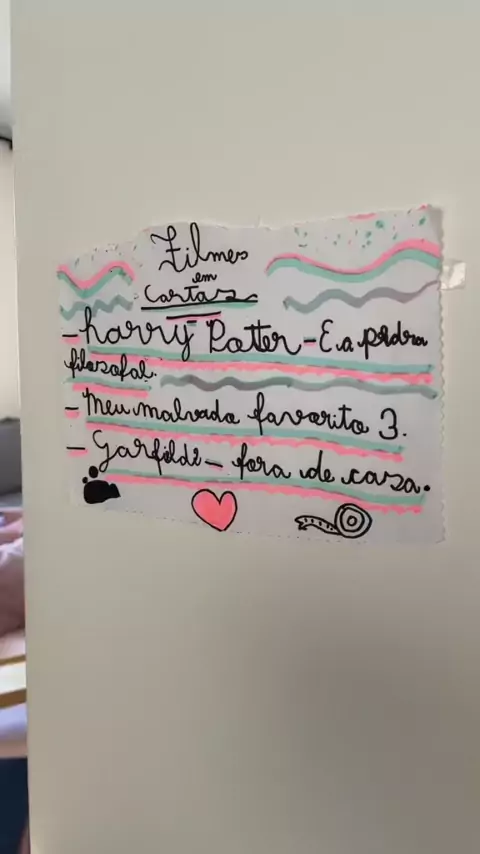 Filmes
em
Cartaz
- harry Potter - E a pedra
filosofal.
- Meu malvado favorito 3.
- Garfildi - fora de casa.